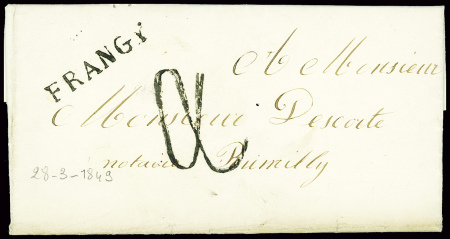 FRANGY
A Monsieur
Monsieur Descote
notaire Rumilly
28-3-1849